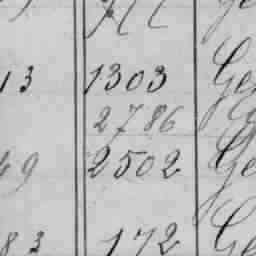 13 1303 Ge
2786
49 2502 Ge
83 172 Ge